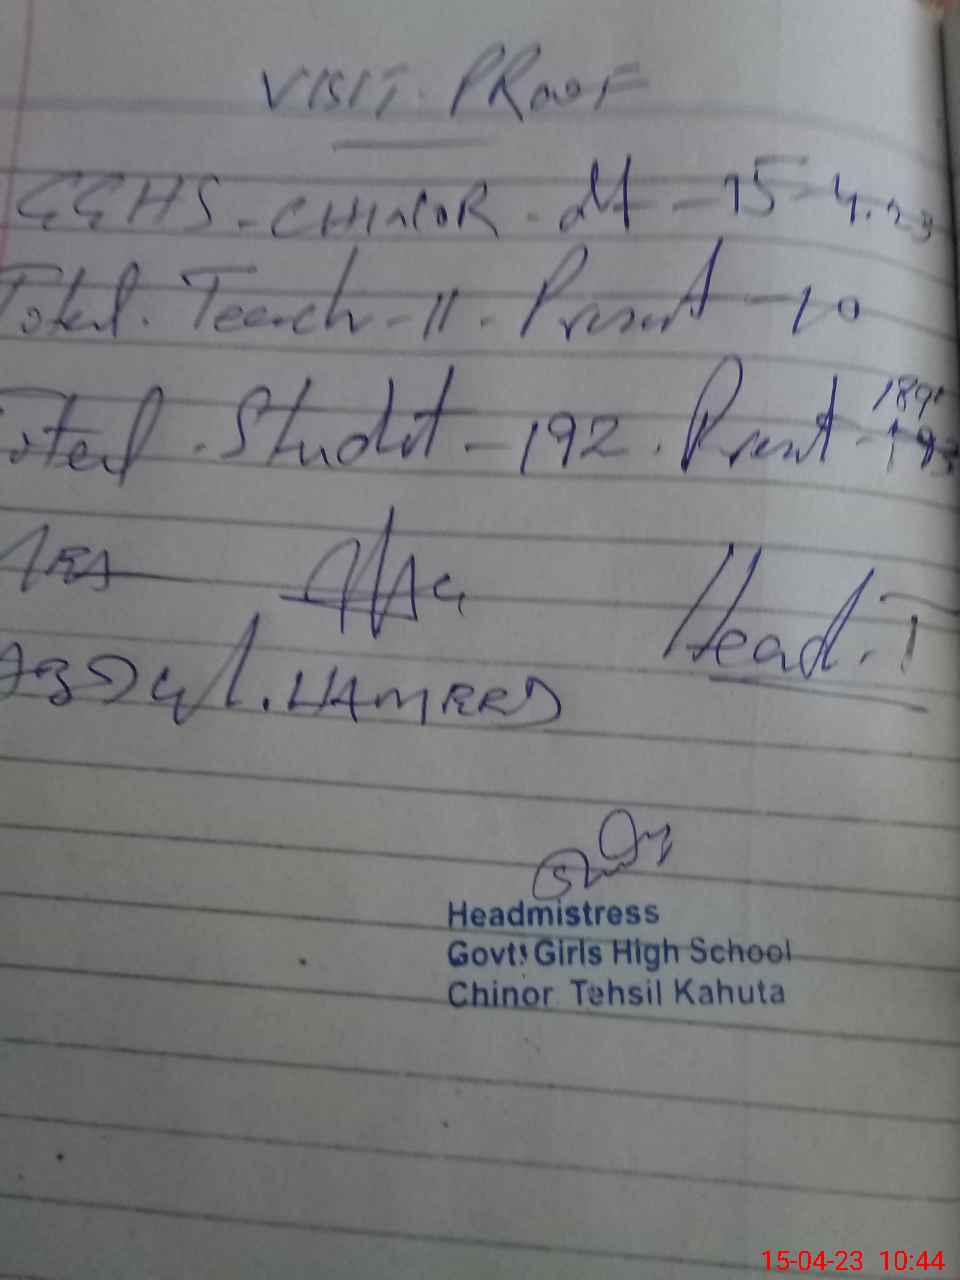 VISIT. PROOF
GGHS - CHINOR - dt - 15-4.23
Total. Teach - 11 - Present - 10
Total - Studet - 192 . Present - 189
Head. T
HAMEED
Headmistress
Govt: Girls High School
Chinor Tehsil Kahuta
15-04-23 10:44